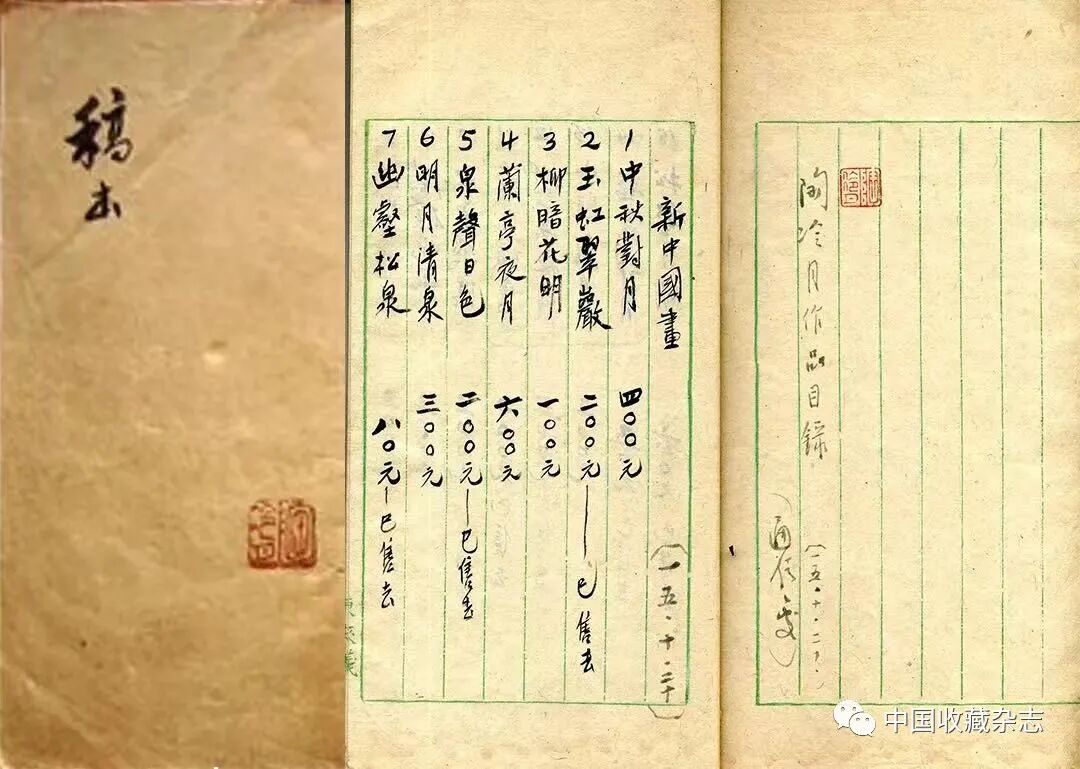 稿本
陶冷月作品目錄
（一五·十·二十·）
通信處
新中國畫
（一五·十·二十）
1 中秋對月 四〇〇元
2 玉虹翠巖 二〇〇元——已售去
3 柳暗花明 一〇〇元
4 蘭亭夜月 六〇〇元
5 泉聲日色 二〇〇元—已售去
6 明月清泉 三〇〇元
7 幽壑松泉 八〇元—已售去
中国收藏杂志